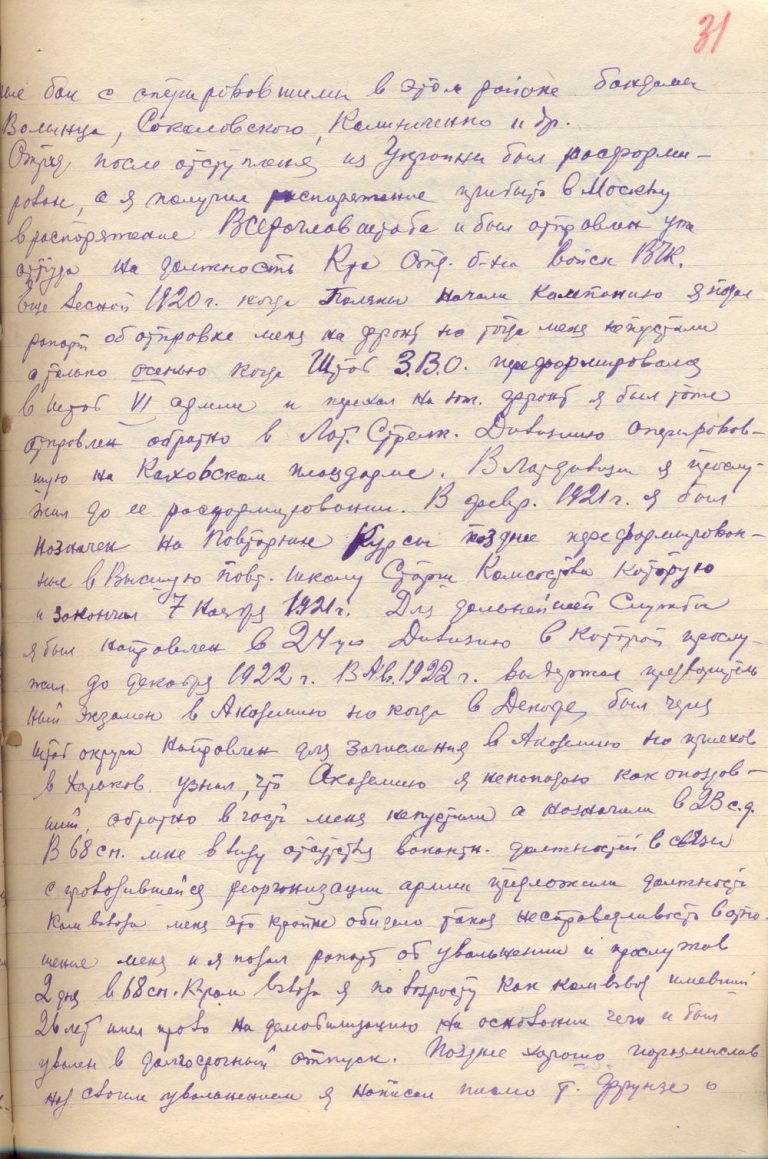 31
бои с оперировавшими в этом районе бандами
Волынца, Соколовского, Калиниченко и др.
Отряд после отступления из Украины был расформи-
рован, а я получил распоряжение прибыть в Москву
в распоряжение Всероглавштаба и был отправлен уже
оттуда на должность К-ра Отд. б-на войск ВЧК.
Еще весной 1920 г. когда Поляки начали кампанию я подал
рапорт об отправке меня на фронт но тогда меня непустили
а только осенью когда Штаб З.В.О. переформировался
в штаб VI армии и переехал на юж. фронт я был тоже
отправлен обратно в Лат. Стрелк. Дивизию оперировав-
шую на Каховском плацдарме. В Латдивизии я прослу-
жил до ее расформирования. В февр. 1921 г. я был
назначен на Повторные Курсы позднее переформирован-
ные в Высшую повт. школу Старш Комсостава которую
и закончил 7 Ноября 1921 г. Для дальнейшей Службы
я был направлен в 24-ую Дивизию в которой прослу-
жил до декабря 1922 г. В Ав. 1922 г. выдержал предворитель
ный экзамен в Академию но когда в Декабре был через
штаб округа направлен для зачисления в Академию но приехав
в Харьков узнал, что Академию я непопадаю как опоздав-
ший, обратно в часть меня непустили а назначили в 23 с.д.
В 68 сп. мне ввиду отсутствия вакантн. должностей в связи
с проводившейся реорганизации армии предложили должность
Ком взвода меня это крайне обидело такая несправедливость в отно-
шение меня и я подал рапорт об увольнении и прослужив
2 дня в 68 сп. К-ром взвода я по возрасту как ком взвод имевший
26 лет имел право на демобилизацию на основании чего и был
уволен в долгосрочный отпуск. Позднее хорошо поразмыслив
над своим увольнением я написал письмо т. Фрунзе о